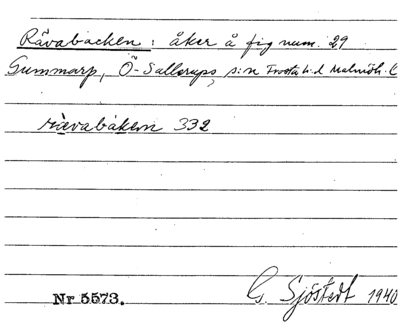 Rävabacken: åker å fig num. 29
Gummarp, Ö-Sallerups s:n Frosta h:d Malmöh. l.
rävabakən 332
Nr 5573.
G. Sjöstedt 1940